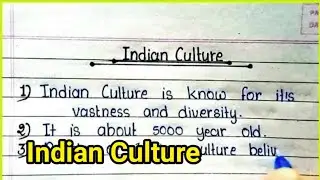 Indian Culture
1) Indian Culture is know for it's
vastness and diversity.
2) It is about 5000 year old.
3)
culture beliv
Indian Culture